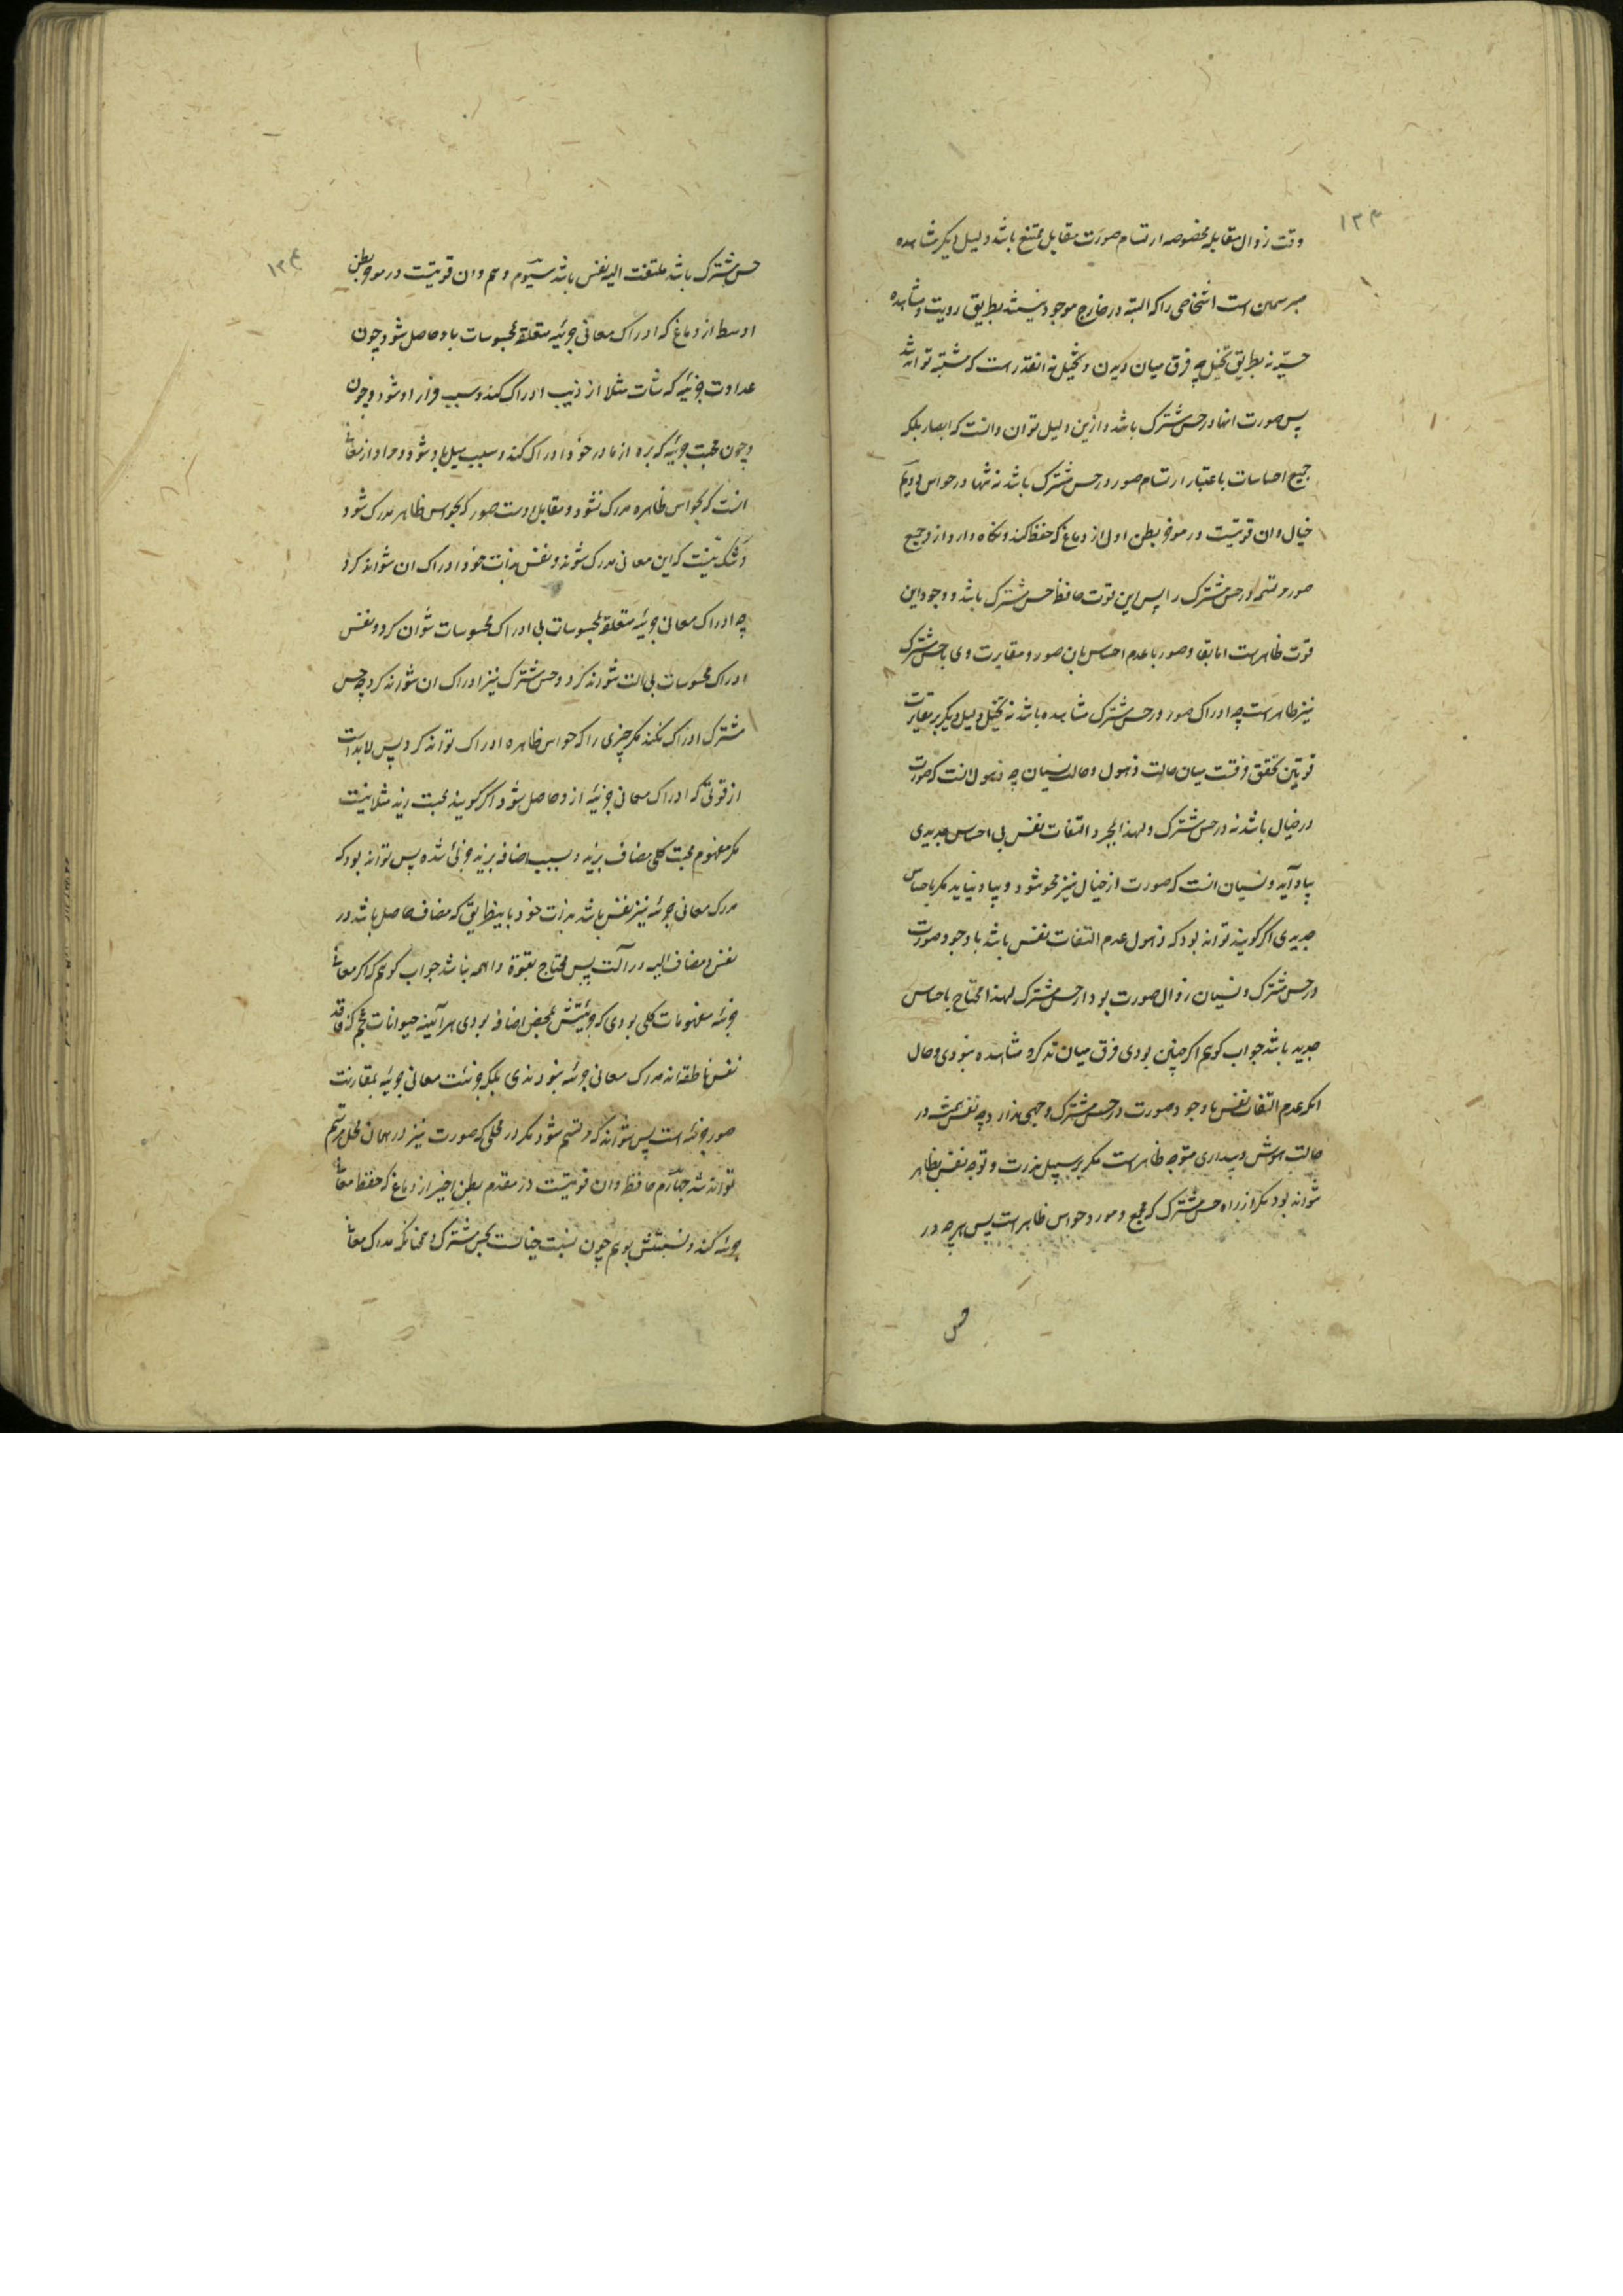 ۱۲۳
وقت زوال مقابله مخصوصه ارتسام صورت مقابل ممتنع باشد دلیل دیکر مشاهده
مبرسمین است اشخاصی را که البته در خارج موجود نیستند بطریق رویت و مشاهده
حسیّه نه بطریق تخیل چه فرق میان دیدن و تخیل نه انقدرست که مشتبه تواند شد
پس صورت انها در حس مشترک باشد و ازین دلیل توان دانست که ابصار بلکه
جمیع احساسات باعتبار ارتسام صور در حس مشترک باشد نه تنها در حواس دویّم
خیال و ان قوتیست در موخر بطن اول از دماغ که حفظ کند و نکاه دارد از وجمیع
صور مرتسمه در حس مشترک را پس این قوت حافظ حس مشترک باشد و وجود این
قوت ظاهرست اما بقاء صور با عدم احساس بان صور و مغایرت وی با حس مشترک
نیز ظاهرست چه ادراک صور در حس مشترک مشاهده باشد نه تخیل دلیل دیکر بر مغایرت
قوتین تحقق فرقست میان حالت ذهول و حالت نسیان چه ذهول انست که صورت
در خیال باشد نه در حس مشترک و لهذا بمجرد التفات نفس بی احساس جدیدی
بیاد آید و نسیان انست که صورت از خیال نیز محو شود و بیاد نیاید مکر باحساس
جدیدی اکر کویند تواند بود که ذهول عدم التفات نفس باشد با وجود صورت
در حس مشترک و نسیان زوال صورت بود از حس مشترک لهذا محتاج باحساس
جدید باشد جواب کویم اکر چنین بودی فرق میان تذکر و مشاهده نبودی و حال
انکه عدم التفات نفس با وجود صورت در حس مشترک وجهی ندارد چه نفس همیشه در
حالت هوش و بیداری متوجه ظاهرست مکر بر سبیل ندرت و توجه نفس بظاهر
نتواند بود مکر از راه حس مشترک که مجمع و مورد حواس ظاهرست پس هر چه در
حس
۱۲۴
حس مشترک باشد ملتفت الیه نفس باشد سیّوم وهم و ان قوتیست در موخر بطن
اوسط از دماغ که ادراک معانی جزئیه متعلقه بمحسوسات باو حاصل شود چون
عداوت جزئیه که شات مثلا از ذیب ادراک کند و سبب فرار او شود و چون
و چون محبت جزئیه که بره از مادر خود ادراک کند و سبب میل باو شود و مراد از معانی
انست که بحواس ظاهره مدرک نشود و مقابل اوست صور که بحواس ظاهر مدرک شود
و شک نیست که این معانی مدرک شوند و نفس بذات خود ادراک ان نتواند کرد
چه ادراک معانی جزئیه متعلقه بمحسوسات بی ادراک محسوسات نتوان کرد و نفس
ادراک محسوسات بی الت نتواند کرد و حس مشترک نیز ادراک ان نتواند کرد چه حس
مشترک ادراک نکند مکر چیزی را که حواس ظاهره ادراک تواند کرد پس لابدست
از قوتی که ادراک معانی جزئیه از و حاصل شود اکر کویند محبت زید مثلا نیست
مکر مفهوم محبت کلی مضاف بزید و بسبب اضافه بزید جزئی شده پس تواند بود که
مدرک معانی جزئیه نیز نفس باشد بذات خود باینطریق که مضاف حاصل باشد در
نفس و مضاف الیه در آلت پس محتاج بقوة واهمه نباشد جواب کویم که اکر معانی
جزئیه مفهومات کلی بودی که جزئیتش بمحض اضافه بودی هرآینه حیوانات عجم که فاقد
نفس ناطقه اند مدرک معانی جزئیه نبودندی بلکه جزئیت معانی جزئیه بمقارنت
صور جزئیه است پس نتواند که مرتسم شود مکر در محلی که صورت نیز در همان محل مرتسم
تواند شد چهارّم حافظه و ان قوتیست در مقدم بطن اخیر از دماغ که حفظ معانی
جزئیه کند و نسبتش بوهم چون نسبت خیالست بحس مشترک و همچنانکه مدرک معانی